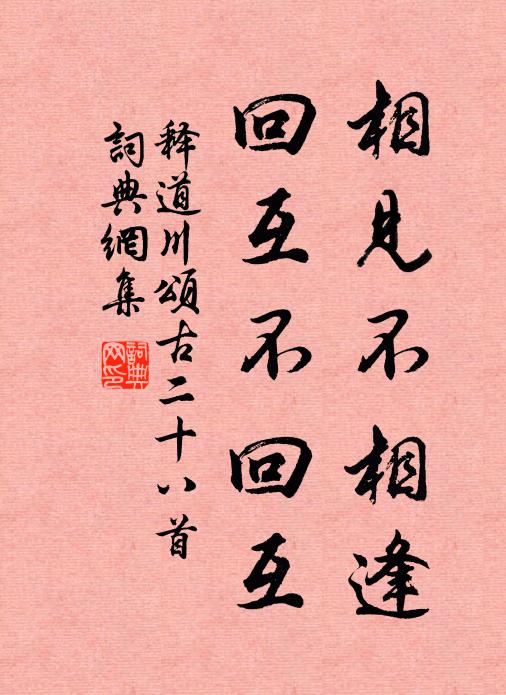 相見不相逢
回互不回互
释道川頌古二十八首
詞典網集
詞典
网印